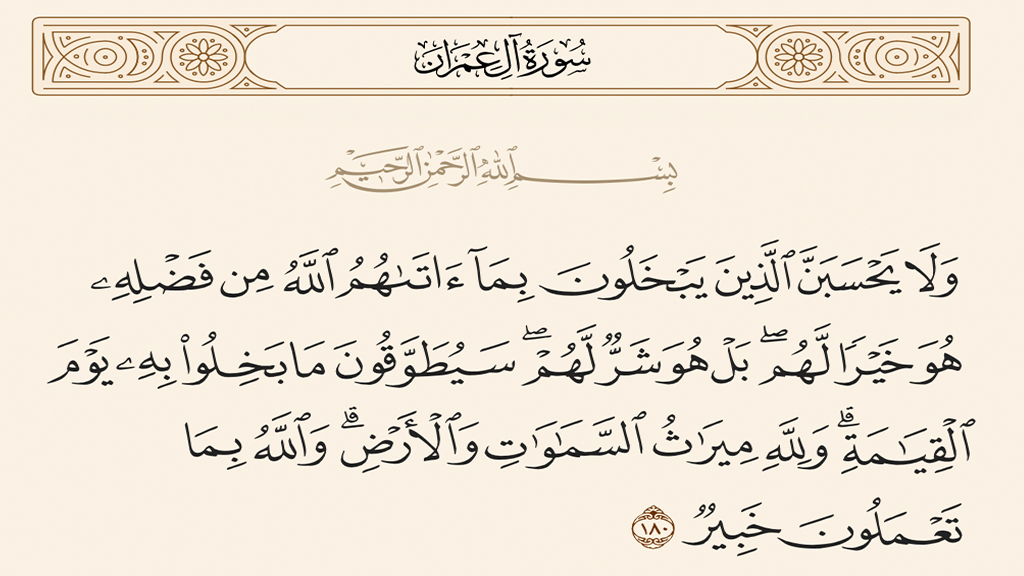 سُورَةُ آلِ عِمْرَان
بِسْمِ ٱللَّهِ ٱلرَّحْمَٰنِ ٱلرَّحِيمِ
وَلَا يَحْسَبَنَّ ٱلَّذِينَ يَبْخَلُونَ بِمَآ ءَاتَىٰهُمُ ٱللَّهُ مِن فَضْلِهِۦ
هُوَ خَيْرًا لَّهُم ۖ بَلْ هُوَ شَرٌّ لَّهُمْ ۖ سَيُطَوَّقُونَ مَا بَخِلُوا۟ بِهِۦ يَوْمَ
ٱلْقِيَٰمَةِ ۗ وَلِلَّهِ مِيرَٰثُ ٱلسَّمَٰوَٰتِ وَٱلْأَرْضِ ۗ وَٱللَّهُ بِمَا
تَعْمَلُونَ خَبِيرٌ ١٨٠